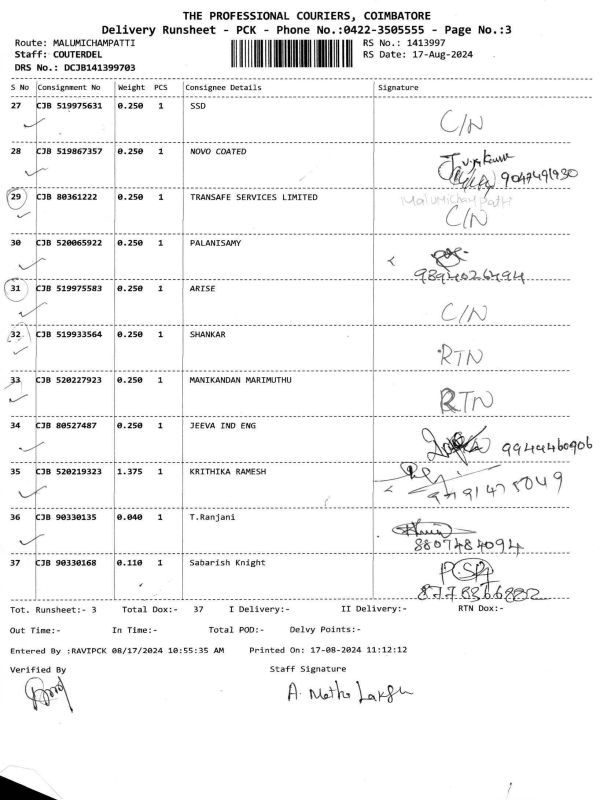 THE PROFESSIONAL COURIERS, COIMBATORE
Delivery Runsheet - PCK - Phone No.:0422-3505555 - Page No.:3
Route: MALUMICHAMPATTI RS No.: 1413997
Staff: COUTERDEL RS Date: 17-Aug-2024
DRS No.: DCJB141399703
S No Consignment No Weight PCS Consignee Details Signature
27 CJB 519975631 0.250 1 SSD C/N
28 CJB 519867357 0.250 1 NOVO COATED 9047491930
29 CJB 80361222 0.250 1 TRANSAFE SERVICES LIMITED Malumichampatti C/N
30 CJB 520065922 0.250 1 PALANISAMY 9894026494
31 CJB 519975583 0.250 1 ARISE C/N
32 CJB 519933564 0.250 1 SHANKAR RTN
33 CJB 520227923 0.250 1 MANIKANDAN MARIMUTHU RTN
34 CJB 80527487 0.250 1 JEEVA IND ENG 9944460906
35 CJB 520219323 1.375 1 KRITHIKA RAMESH
36 CJB 90330135 0.040 1 T.Ranjani 8807484094
37 CJB 90330168 0.110 1 Sabarish Knight
Tot. Runsheet:- 3 Total Dox:- 37 I Delivery:- II Delivery:- RTN Dox:-
Out Time:- In Time:- Total POD:- Delvy Points:-
Entered By :RAVIPCK 08/17/2024 10:55:35 AM Printed On: 17-08-2024 11:12:12
Verified By Staff Signature